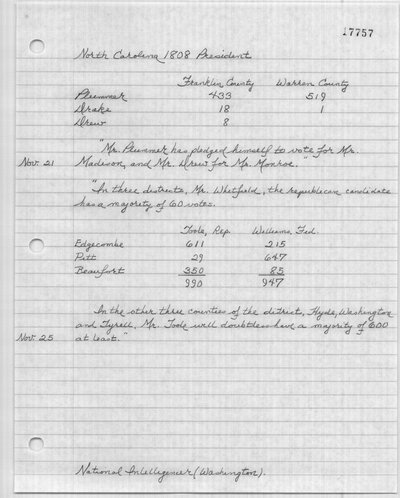 17757
North Carolina 1808 President
Franklin County Warren County
Plummer 433 519
Drake 18 1
Drew 8
"Mr. Plummer has pledged himself to vote for Mr.
Nov. 21 Madison, and Mr. Drew for Mr. Monroe."
"In three districts, Mr. Whitfield, the republican candidate
has a majority of 60 votes.
Toole, Rep. Williams, Fed.
Edgecombe 611 215
Pitt 29 647
Beaufort 350 85
990 947
In the other three counties of the district, Hyde, Washington
and Tyrell, Mr. Toole will doubtless have a majority of 600
Nov. 25 at least."
National Intelligencer (Washington).